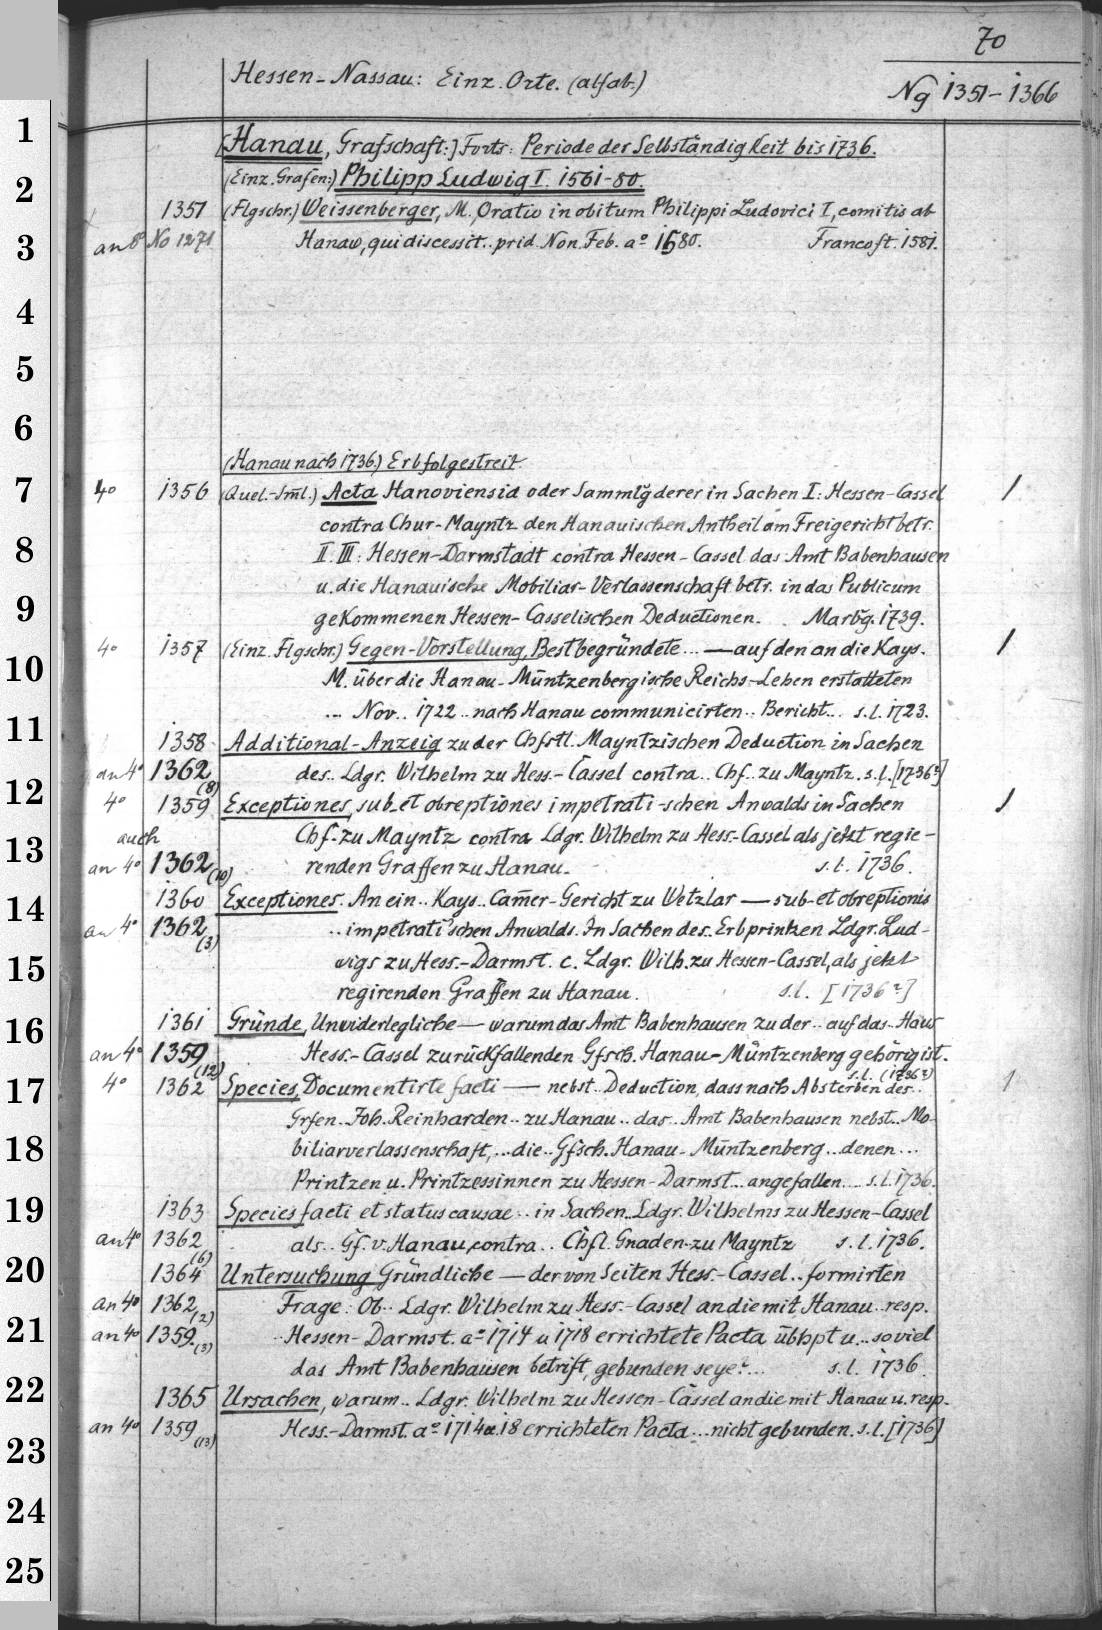 70
Hessen-Nassau: Einz. Orte. (alfab.)
Ng 1351-1366
1
[Hanau, Grafschaft:] Forts: Periode der Selbständigkeit bis 1736.
2
(Einz. Grafen:) Philipp Ludwig I. 1561-80.
1351 (Flgschr.) Weissenberger, M. Oratio in obitum Philippi Ludovici I, comitis ab
3
an 8° No 1271 Hanaw, qui discessit.. prid. Non. Feb. a° 1580. Francoft. 1581.
4
5
6
(Hanau nach 1736.) Erbfolgestreit
7
4° 1356 (Quel.-Sml.) Acta Hanoviensia oder Sammlg derer in Sachen I: Hessen-Cassel 1
contra Chur-Mayntz den Hanauischen Antheil am Freigericht betr.
8
II. III: Hessen-Darmstadt contra Hessen-Cassel das Amt Babenhausen
u. die Hanauische Mobiliar-Verlassenschaft betr. in das Publicum
9
gekommenen Hessen-Casselischen Deductionen. Marbg. 1739.
4° 1357 (Einz. Flgschr.) Gegen-Vorstellung, Bestbegründete ... — auf den an die Kays. 1
10
M. über die Hanau-Müntzenbergische Reichs-Lehen erstatteten
... Nov.. 1722 .. nach Hanau communicirten.. Bericht... s.l. 1723.
11
1358 Additional-Anzeig zu der Chfstl. Mayntzischen Deduction in Sachen
an 4° 1362 (8) des.. Ldgr. Wilhelm zu Hess.-Cassel contra.. Chf. zu Mayntz. s.l. [1736?]
12
4° 1359 Exceptiones, sub. et obreptiones impetrati-schen Anwalds in Sachen 1
auch Chf. zu Mayntz contra Ldgr. Wilhelm zu Hess.-Cassel als jetzt regie-
13
an 4° 1362 (10) renden Graffen zu Hanau. s.l. 1736.
1360 Exceptiones. An ein.. Kays.. Camer-Gericht zu Wetzlar — sub- et obreptionis
14
an 4° 1362 (3) .. impetrati'schen Anwalds. In Sachen des.. Erbprinten Ldgr. Lud-
15
wigs zu Hess.-Darmst. c. Ldgr. Wilh. zu Hessen-Cassel, als jetzt
regirenden Graffen zu Hanau. s.l. [1736?]
16
1361 Gründe, Unwiderlegliche — warum das Amt Babenhausen zu der.. auf das.. Haus
an 4° 1359 (12) Hess.-Cassel zurückfallenden Gfsch. Hanau-Müntzenberg gehörig ist.
s.l. (1736?)
17
4° 1362 Species, Documentirte facti — nebst.. Deduction, dass nach Absterben des.. 1
Grfen.. Joh. Reinharden.. zu Hanau.. das.. Amt Babenhausen nebst.. Mo-
18
biliarverlassenschaft,... die.. Gfsch. Hanau-Müntzenberg... denen...
Printzen u. Printzessinnen zu Hessen-Darmst... angefallen.... s.l. 1736.
19
1363 Species facti et status causae.. in Sachen.. Ldgr. Wilhelms zu Hessen-Cassel
an 4° 1362 (6) als.. Gf. v. Hanau, contra.. Chfl. Gnaden zu Mayntz s.l. 1736.
20
1364 Untersuchung Gründliche — der von Seiten Hess.-Cassel.. formirten
an 4° 1362 (2) Frage: Ob.. Ldgr. Wilhelm zu Hess.-Cassel an die mit Hanau.. resp.
21
an 4° 1359. (3) Hessen-Darmst. a° 1714 u 1718 errichtete Pacta übhpt u... so viel
das Amt Babenhausen betrift, gebunden seye?... s.l. 1736
22
1365 Ursachen, warum.. Ldgr. Wilhelm zu Hessen-Cassel an die mit Hanau u. resp.
an 4° 1359 (13) Hess.-Darmst. a° 1714 u. 18 errichteten Pacta... nicht gebunden. s.l. [1736]
23
24
25